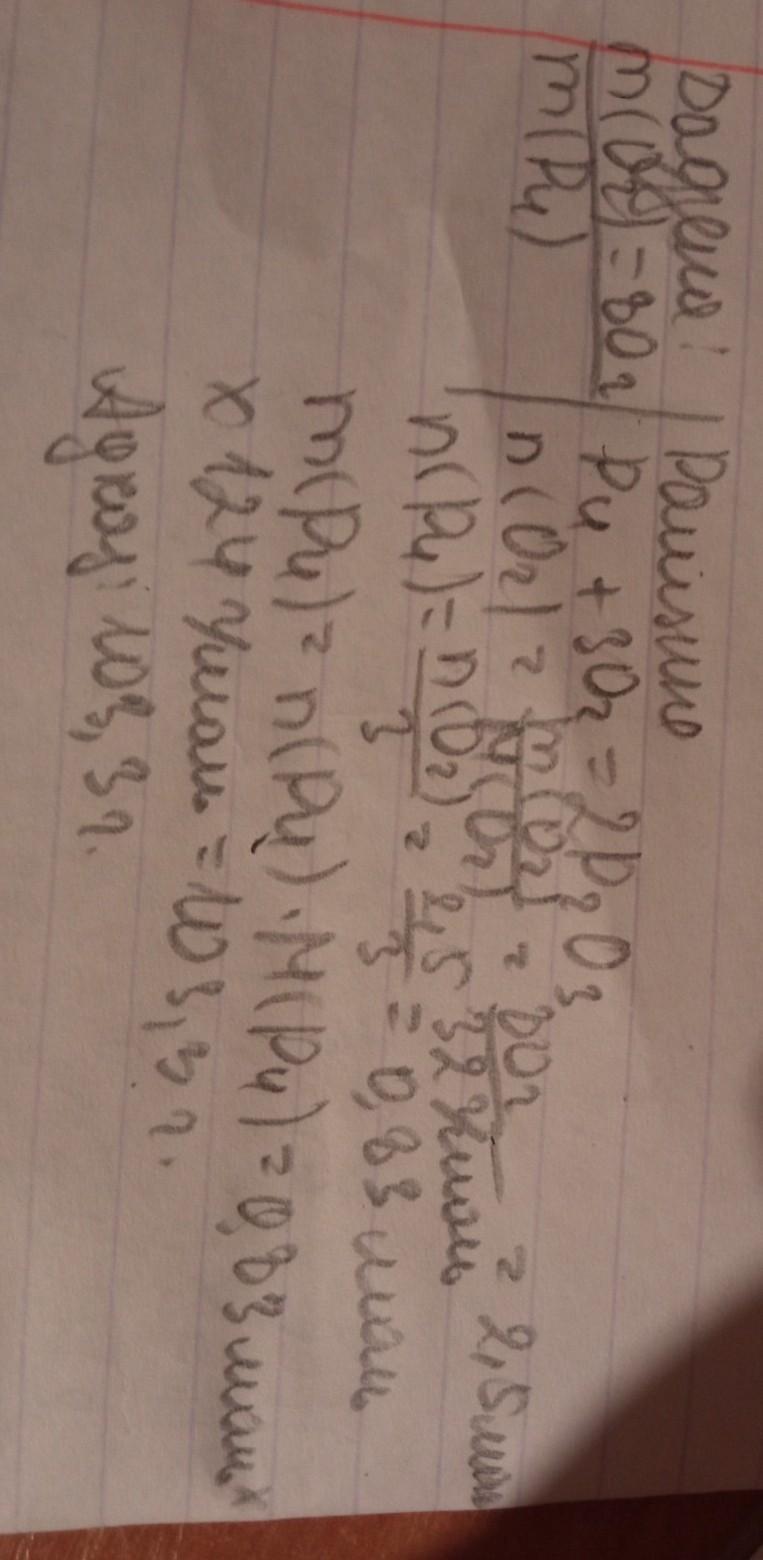 Дадзена: | Рашэнне
m(O₂) = 80г | P₄ + 3O₂ = 2P₂O₃
m(P₄)
n(O₂) = m(O₂)/M(O₂) = 80г/32г/моль = 2,5моль
n(P₄) = n(O₂)/3 = 2,5/3 = 0,83 моль
m(P₄) = n(P₄) · M(P₄) = 0,83 моль x
x 124 г/моль = 103,3 г.
Адказ: 103,3г.